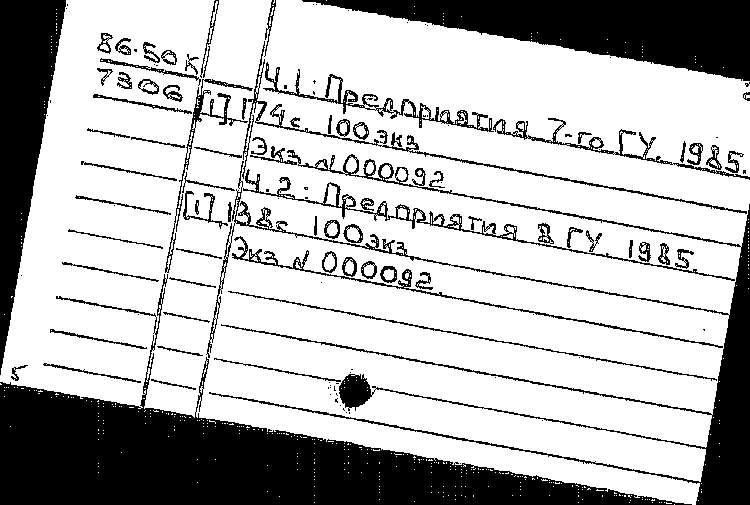 86.50К
7306
Ч.1: Предприятия 7-го ГУ. 1985.
[1], 174с. 100экз
Экз. N 000092.
Ч.2: Предприятия 8 ГУ. 1985.
[1], 138с. 100экз.
Экз. N 000092.
5